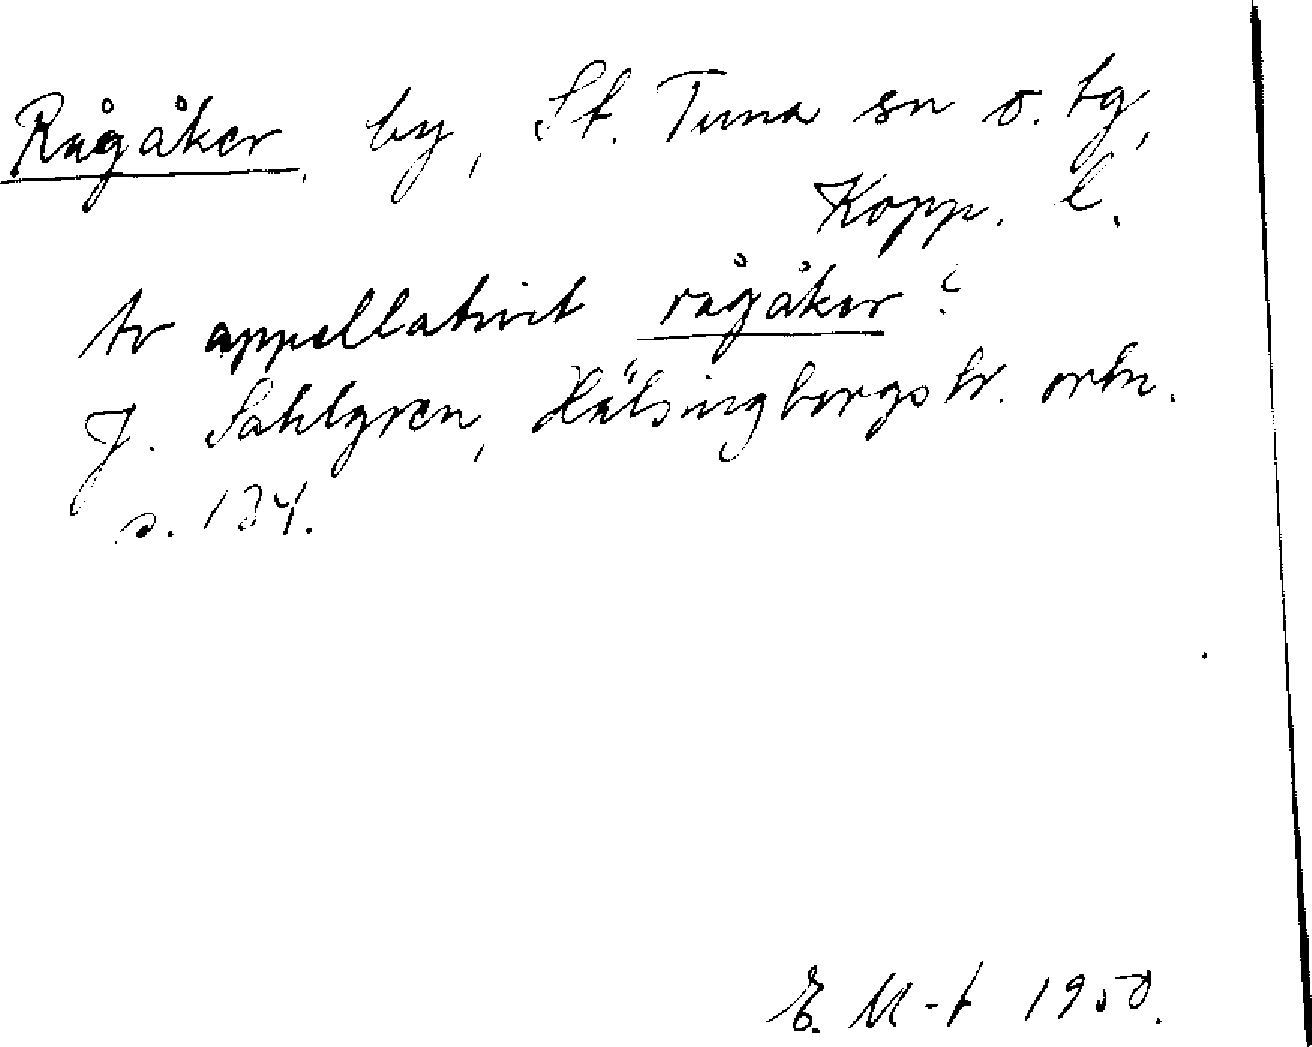 Rågåker, by, St. Tuna sn o. tg,
Kopp. l.
Av appellativet rågåker?
J. Sahlgren, Hälsingborgstr. ortn.
s. 134.
E. M-t 1950.